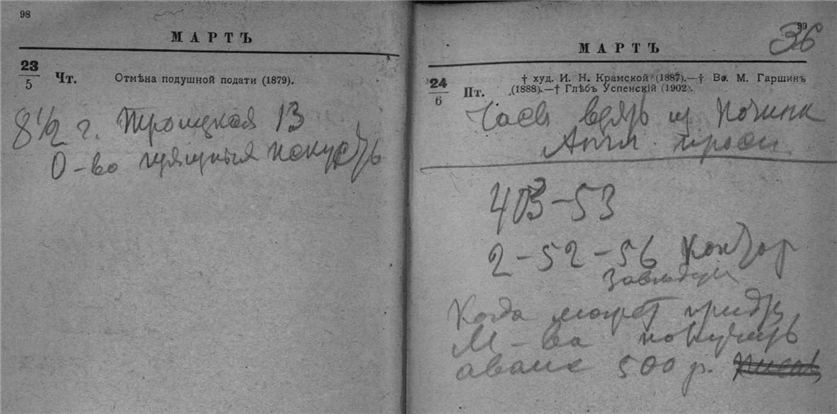 98
МАРТЪ
23
5
Чт.
Отмѣна подушной подати (1879).
8 1/2 г. Троицкая 13
О-во изящныя искусствъ
99
36
МАРТЪ
24
6
Пт.
† худ. И. Н. Крамской (1887).—† Вс. М. Гаршинъ
(1888).—† Глѣбъ Успенскій (1902).
Часы взять из починк
403-53
2-52-56
Когда может
М-ва получить
аванс 500 р.